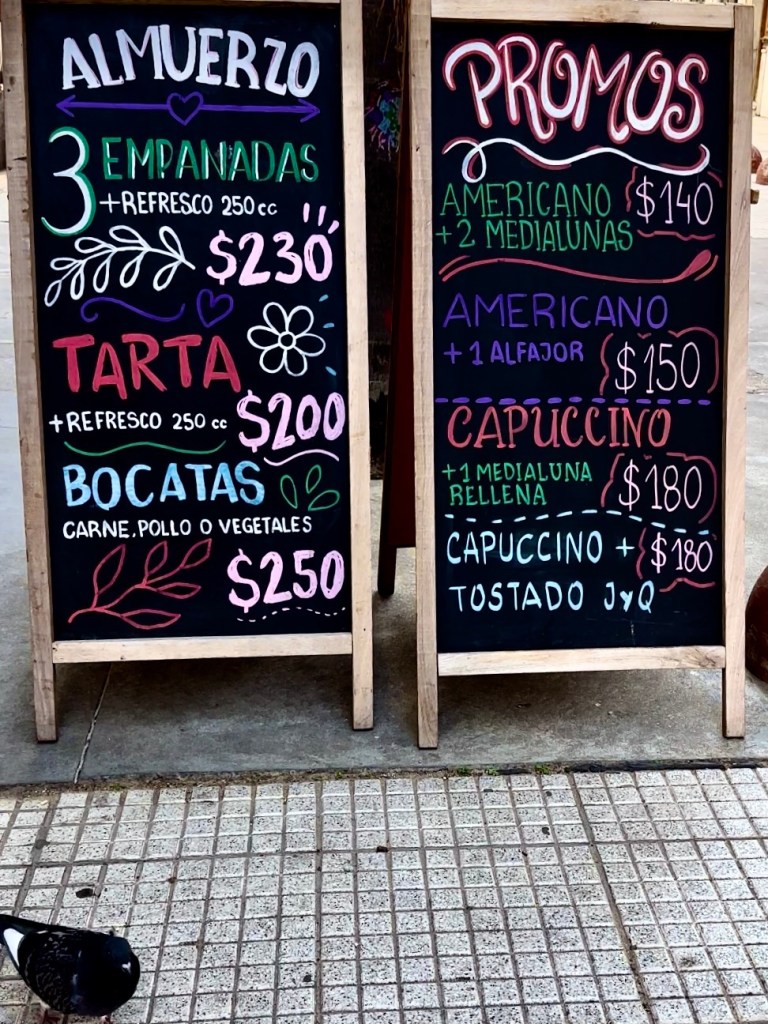 ALMUERZO
3 EMPANADAS
+REFRESCO 250cc
$230
TARTA
+REFRESCO 250 cc
$200
BOCATAS
CARNE, POLLO O VEGETALES
$250
PROMOS
AMERICANO $140
+ 2 MEDIALUNAS
AMERICANO
+ 1 ALFAJOR $150
CAPUCCINO
+1 MEDIALUNA $180
RELLENA
CAPUCCINO + $180
TOSTADO JyQ